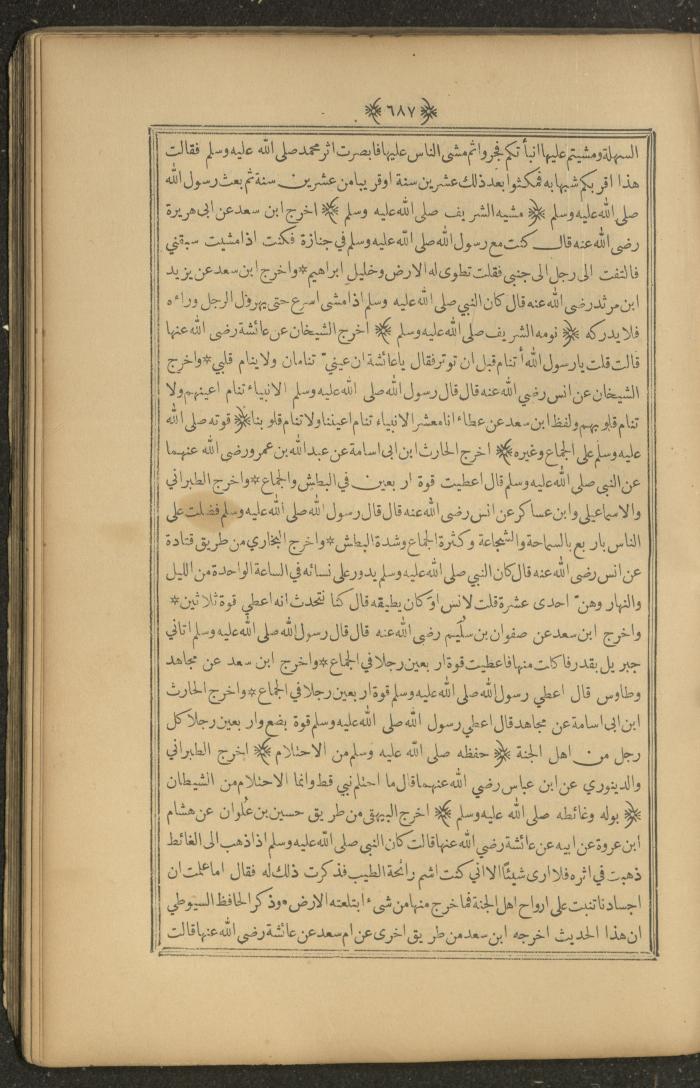 ﴿ ٦٨٧ ﴾
السهلة ومشيتم عليها انبأ تكم فجروا ثم مشى الناس عليها فابصرت اثر محمد صلى الله عليه وسلم فقالت
هذا اقر بكم شبها به فمكثوا بعد ذلك عشرين سنة او قريبا من عشرين سنة ثم بعث رسول الله
صلى الله عليه وسلم ﴿ مشيه الشريف صلى الله عليه وسلم ﴾ اخرج ابن سعد عن ابى هريرة
رضى الله عنه قال كنت مع رسول الله صلى الله عليه وسلم في جنازة فكنت اذا مشيت سبقني
فالتفت الى رجل الى جنبي فقلت تطوى له الارض وخليل ابراهيم * واخرج ابن سعد عن يزيد
ابن مرثد رضى الله عنه قال كان النبي صلى الله عليه وسلم اذا مشى اسرع حتى يهرول الرجل وراءه
فلا يدركه ﴿ نومه الشريف صلى الله عليه وسلم ﴾ اخرج الشيخان عن عائشة رضى الله عنها
قالت قلت يارسول الله أتنام قبل ان توتر فقال ياعائشة ان عينيّ تنامان ولا ينام قلبي * واخرج
الشيخان عن انس رضي الله عنه قال قال رسول الله صلى الله عليه وسلم الانبياء تنام اعينهم ولا
تنام قلوبهم ولفظ ابن سعد عن عطاء انا معشر الانبياء تنام اعيننا ولا تنام قلوبنا ﴿ قوته صلى الله
عليه وسلم على الجماع وغيره ﴾ اخرج الحارث ابن ابى اسامة عن عبد الله بن عمرو رضى الله عنهما
عن النبي صلى الله عليه وسلم قال اعطيت قوة اربعين في البطش والجماع * واخرج الطبراني
والاسماعيلى وابن عساكر عن انس رضى الله عنه قال قال رسول الله صلى الله عليه وسلم فضلت على
الناس باربع بالسماحة والشجاعة وكثرة الجماع وشدة البطش * واخرج البخاري من طريق قتادة
عن انس رضى الله عنه قال كان النبي صلى الله عليه وسلم يدور على نسائه في الساعة الواحدة من الليل
والنهار وهنّ احدى عشرة قلت لانس اوَ كان يطيقه قال كنا نتحدث انه اعطي قوة ثلاثين *
واخرج ابن سعد عن صفوان بن سلُيم رضى الله عنه قال قال رسول الله صلى الله عليه وسلم اتاني
جبريل بقدر فاكلت منها فاعطيت قوة اربعين رجلا في الجماع * واخرج ابن سعد عن مجاهد
وطاوس قال اعطي رسول الله صلى الله عليه وسلم قوة اربعين رجلا في الجماع * واخرج الحارث
ابن ابى اسامة عن مجاهد قال اعطي رسول الله صلى الله عليه وسلم قوة بضع واربعين رجلا كل
رجل من اهل الجنة ﴿ حفظه صلى الله عليه وسلم من الاحتلام ﴾ اخرج الطبراني
والدينوري عن ابن عباس رضي الله عنهما قال ما احتلم نبي قط وانما الاحتلام من الشيطان
﴿ بوله وغائطه صلى الله عليه وسلم ﴾ اخرج البيهقى من طريق حسين بن عُلوان عن هشام
ابن عروة عن ابيه عن عائشة رضي الله عنها قالت كان النبي صلى الله عليه وسلم اذا ذهب الى الغائط
ذهبت في اثره فلا ارى شيئًا الا اني كنت اشم رائحة الطيب فذكرت ذلك له فقال اما علمت ان
اجسادنا تنبت على ارواح اهل الجنة فما خرج منها من شىء ابتلعته الارض * وذكر الحافظ السيوطي
ان هذا الحديث اخرجه ابن سعد من طريق اخرى عن ام سعد عن عائشة رضي الله عنها قالت